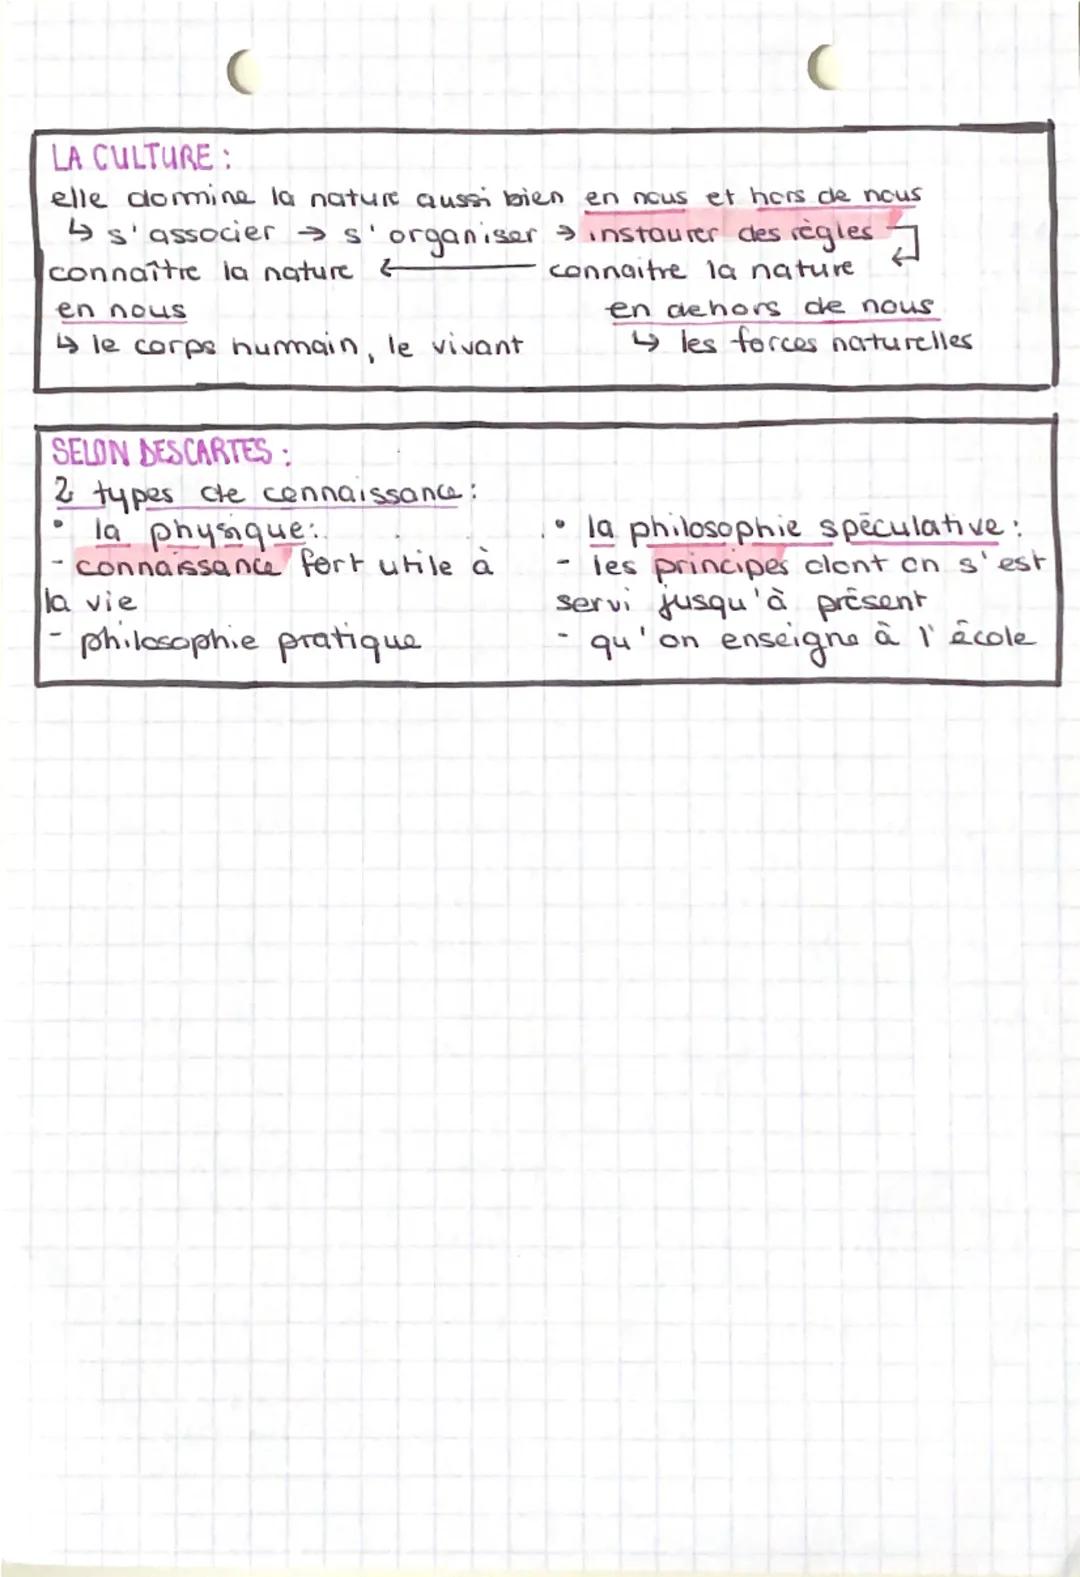 LA CULTURE :
elle domine la nature aussi bien en nous et hors de nous
↳ s'associer → s'organiser → instaurer des règles
connaître la nature ← connaitre la nature
en nous en dehors de nous
↳ le corps humain, le vivant ↳ les forces naturelles
SELON DESCARTES :
2 types de connaissance :
• la physique :
- connaissance fort utile à
la vie
- philosophie pratique
• la philosophie spéculative :
- les principes dont on s'est
servi jusqu'à présent
- qu'on enseigne à l'école